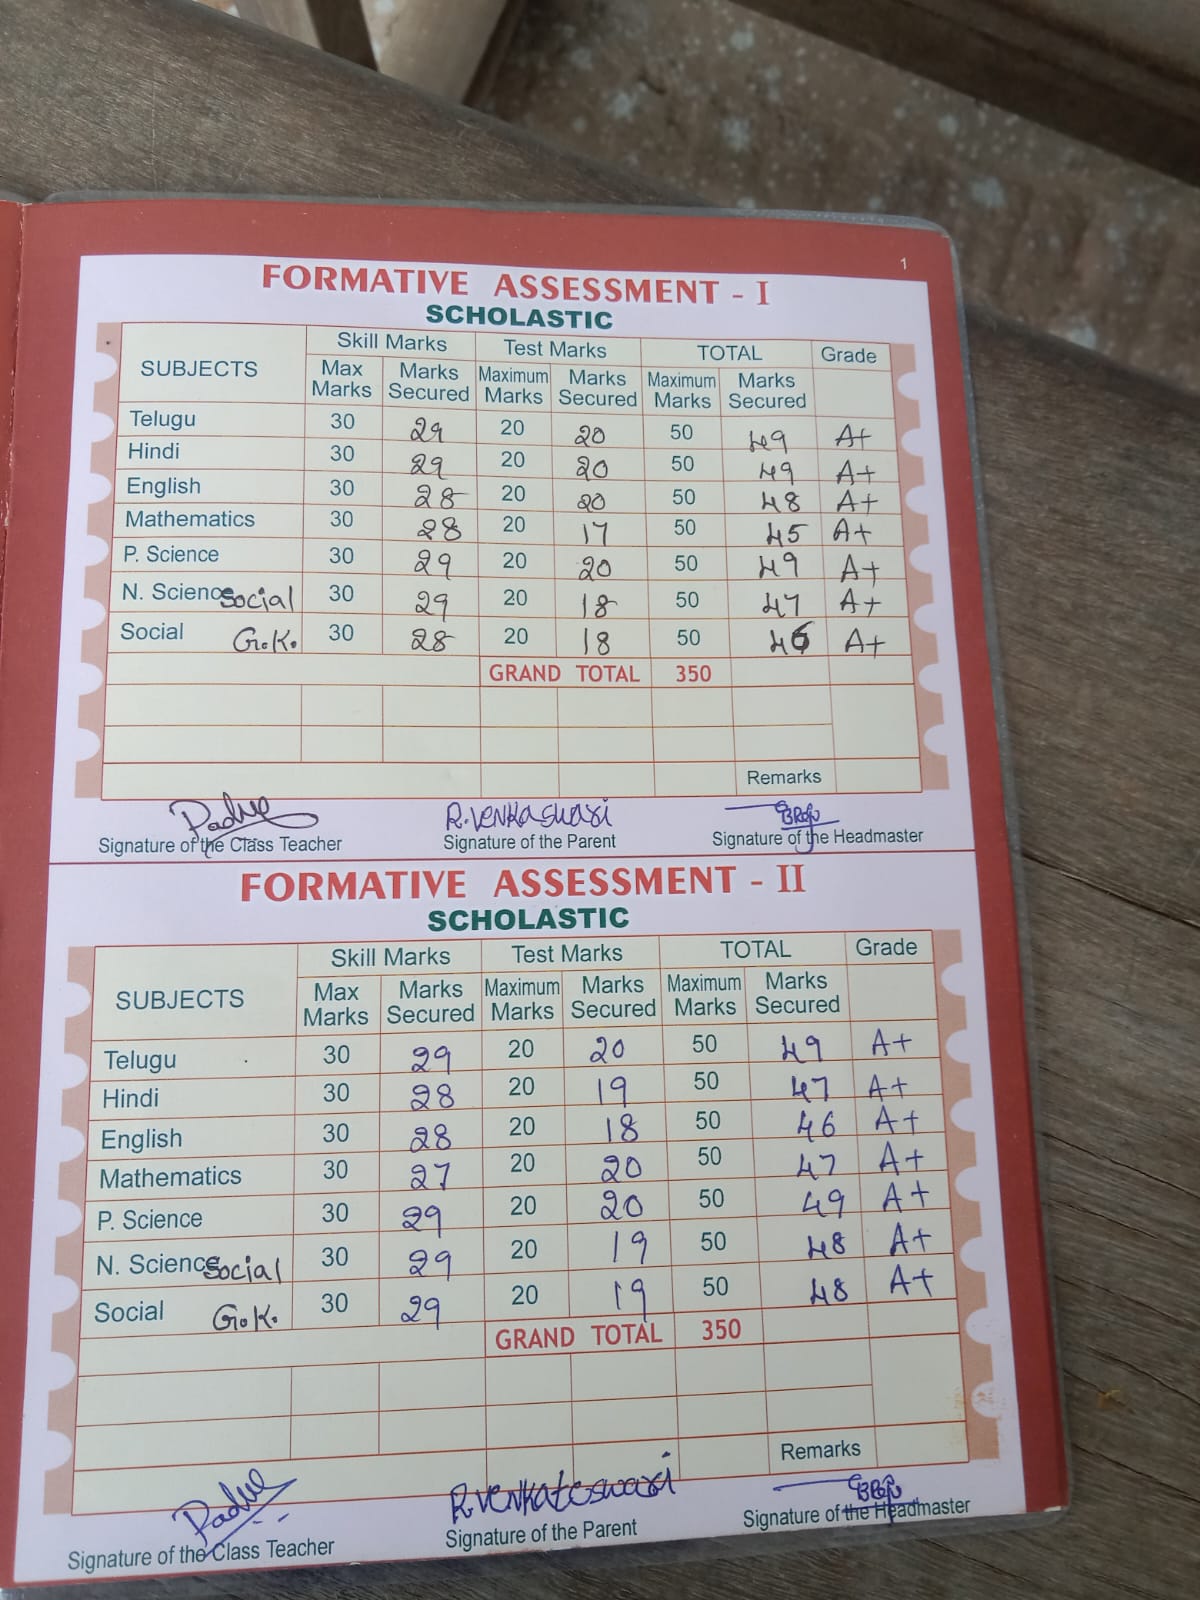 1
FORMATIVE ASSESSMENT - I
SCHOLASTIC
SUBJECTS Skill Marks Test Marks TOTAL Grade
Max Marks Marks Secured Maximum Marks Marks Secured Maximum Marks Marks Secured
Telugu 30 29 20 20 50 49 A+
Hindi 30 29 20 20 50 49 A+
English 30 28 20 20 50 48 A+
Mathematics 30 28 20 17 50 45 A+
P. Science 30 29 20 20 50 49 A+
N. Science Social 30 29 20 18 50 47 A+
Social G.K. 30 28 20 18 50 46 A+
GRAND TOTAL 350
Remarks
Padma R.Venkaswari
Signature of the Class Teacher Signature of the Parent Signature of the Headmaster
FORMATIVE ASSESSMENT - II
SCHOLASTIC
SUBJECTS Skill Marks Test Marks TOTAL Grade
Max Marks Marks Secured Maximum Marks Marks Secured Maximum Marks Marks Secured
Telugu 30 29 20 20 50 49 A+
Hindi 30 28 20 19 50 47 A+
English 30 28 20 18 50 46 A+
Mathematics 30 27 20 20 50 47 A+
P. Science 30 29 20 20 50 49 A+
N. Science Social 30 29 20 19 50 48 A+
Social G.K. 30 29 20 19 50 48 A+
GRAND TOTAL 350
Remarks
Padma R.Venkateswari
Signature of the Class Teacher Signature of the Parent Signature of the Headmaster